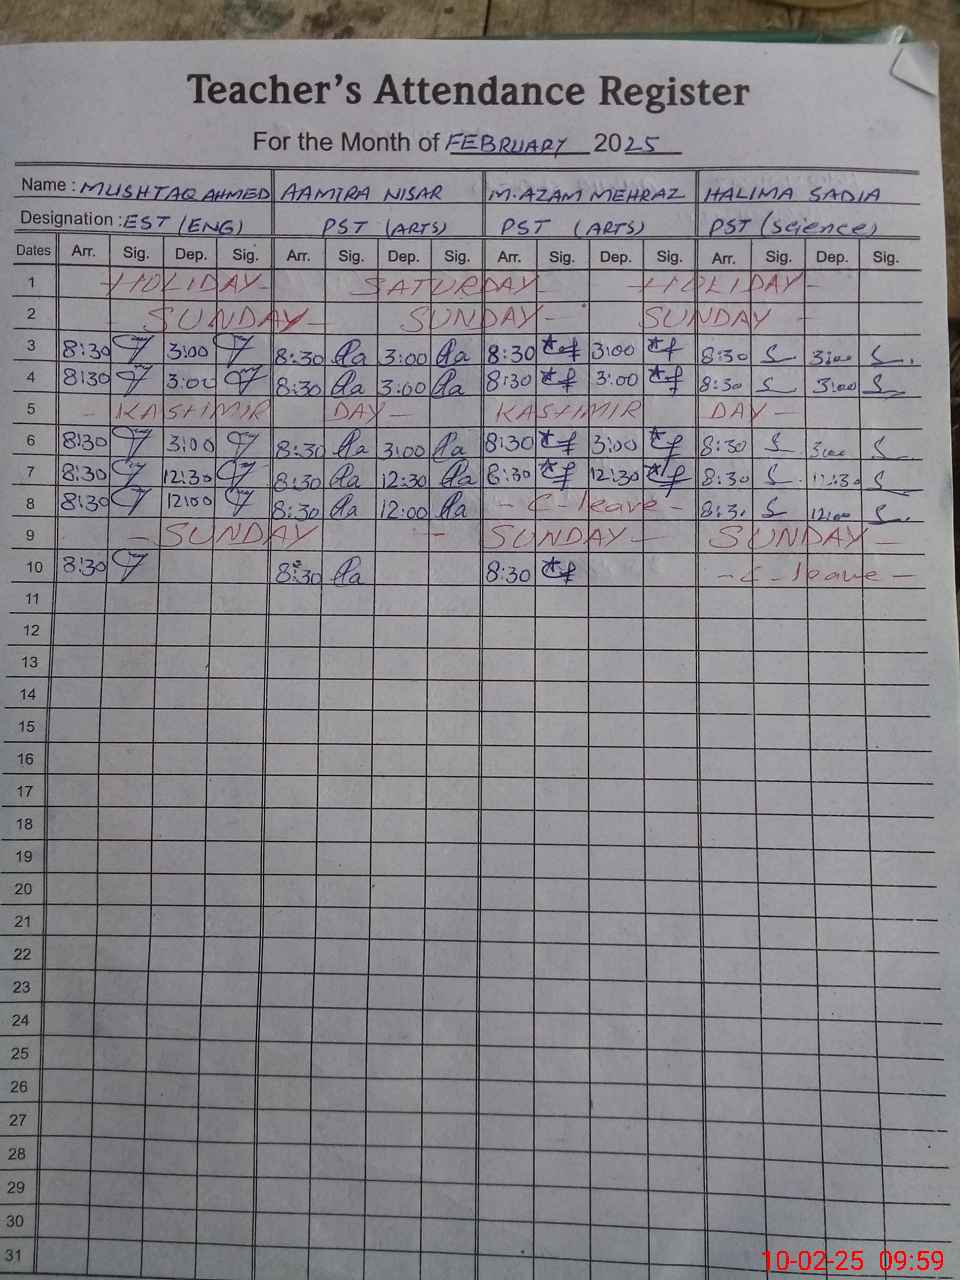 Teacher's Attendance Register
For the Month of FEBRUARY 2025
Name : MUSHTAQ AHMED AAMIRA NISAR M. AZAM MEHRAZ HALIMA SADIA
Designation : EST (ENG) PST (ARTS) PST (ARTS) PST (science)
Dates Arr. Sig. Dep. Sig. Arr. Sig. Dep. Sig. Arr. Sig. Dep. Sig. Arr. Sig. Dep. Sig.
1 HOLIDAY - SATURDAY - HOLIDAY -
2 - SUNDAY - SUNDAY - SUNDAY -
3 8:30 3:00 8:30 3:00 8:30 3:00 8:30 3:00
4 8:30 3:00 8:30 3:00 8:30 3:00 8:30 3:00
5 - KASHMIR DAY - KASHMIR DAY -
6 8:30 3:00 8:30 3:00 8:30 3:00 8:30 3:00
7 8:30 12:30 8:30 12:30 8:30 12:30 8:30
8 8:30 12:00 8:30 12:00 - C-leave - 8:30 12:00
9 - SUNDAY - SUNDAY - SUNDAY -
10 8:30 8:30 8:30 - C-leave -
11
12
13
14
15
16
17
18
19
20
21
22
23
24
25
26
27
28
29
30
31
10-02-25 09:59